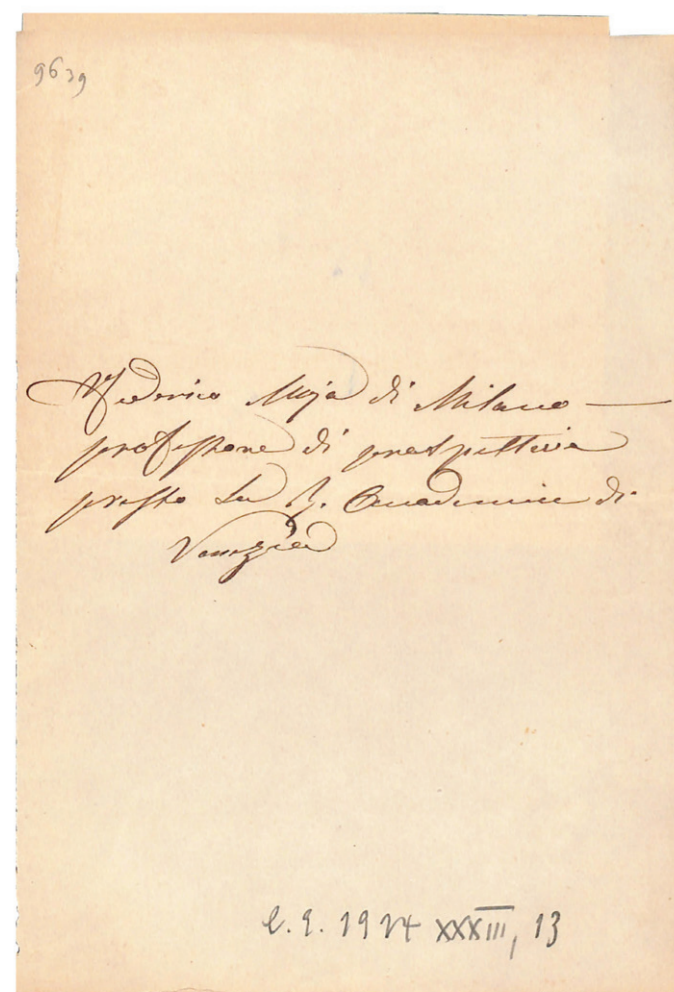 9639
Federico Moja di Milano —
professore di prospettiva
presso la R. Accademia di
Venezia
1924 XXXIII, 13